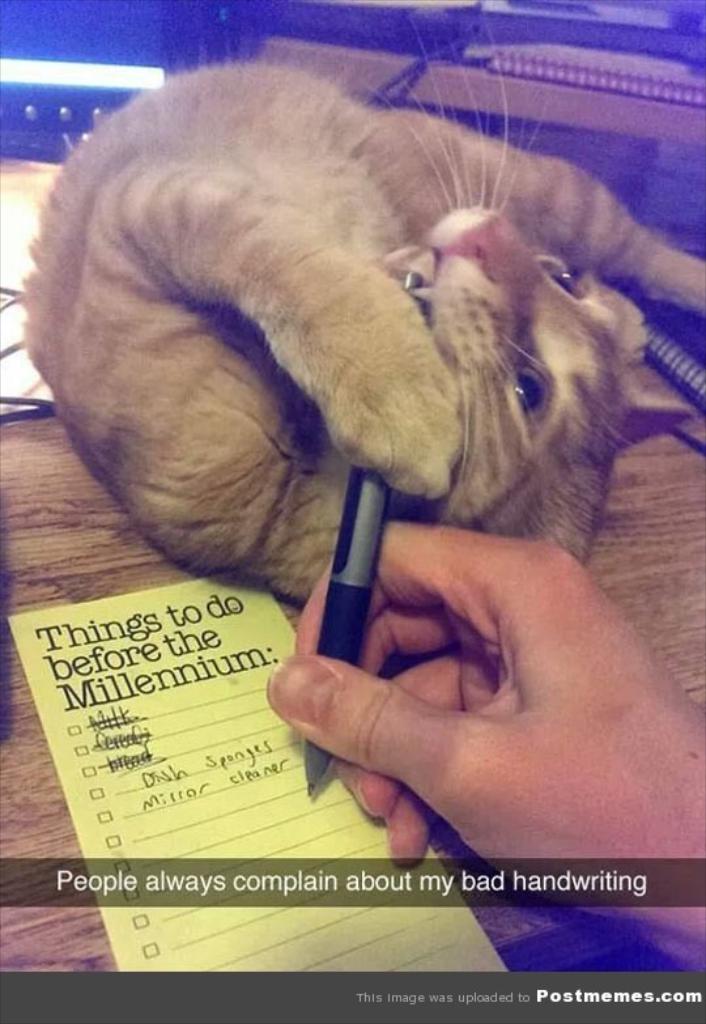 Things to do
before the
Millennium:
Milk
Cereal
bread
Dish Sponges
Mirror cleaner
People always complain about my bad handwriting
This image was uploaded to Postmemes.com